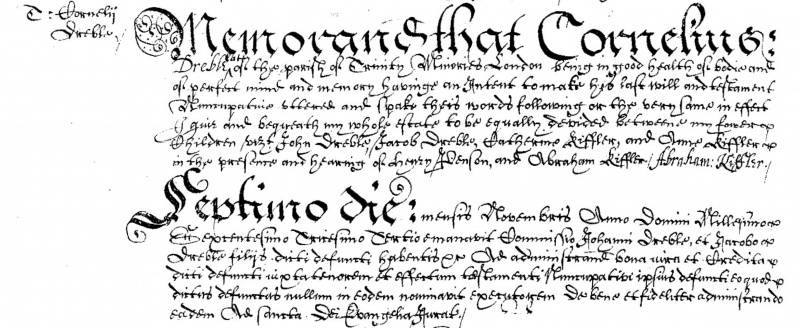 T: Cornelij
Dreble
Memorand that Cornelius:
Dreble late of the parish of Trinity Minories London being in good health of bodie and
of perfect mind and memory havinge an Intent to make his last will and testament
Nuncupative uttered and spake theis words following or the very same in effect
I give and bequeath my whole estate to be equally devided betweene my fower
Children vizt John Dreble, Jacob Dreble, Catherine Kiffler, and Anne Kiffler
in the presence and hearing of Henry and Abraham Kiffler / Abraham: Kiffler
Septimo die: mensis Novembris Anno Domini Millesimo
Sexcentesimo Tricesimo Tertio emanavit Commissio Johanni Dreble, et Jacobo
Dreble filijs dicti defuncti habentis &c Ad administrand bona iura et Credita
dicti defuncti iuxta tenorem et effectum testamenti Nuncupativi ipsius defuncti eo quod
dictus defunctus nullum in eodem nominavit executorem De bene et fideliter administrando
eadem Ad sancta Dei Evangelia Jurat